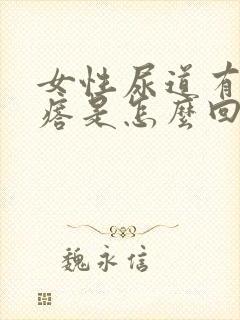 女性尿道有
痞是怎麼回
魏永信